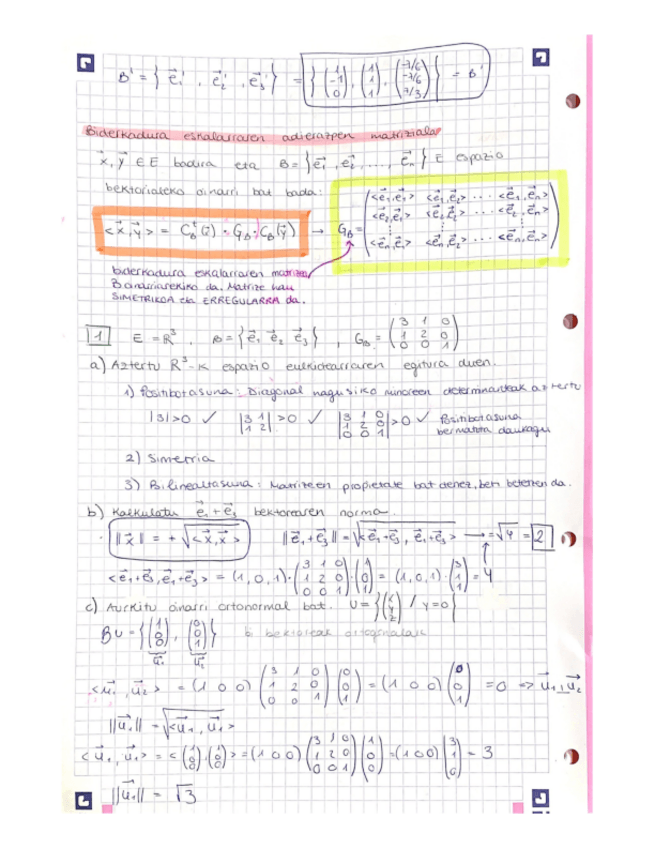 B' = { e₁', e₂', e₃' } = { (1 -1 0), (1 1 1), (-7/6 -7/6 7/3) } = B'
Biderkadura eskalarraren adierazpen matriziala
x⃗, y⃗ ∈ E badira eta B = { e⃗₁, e⃗₂, ..., e⃗ₙ } E espazio
bektorialeko oinarri bat bada:
<x⃗, y⃗> = C_B^t(x⃗) · G_B · C_B(y⃗) → G_B = ( <e⃗₁,e⃗₁> <e⃗₁,e⃗₂> ... <e⃗₁,e⃗ₙ>
<e⃗₂,e⃗₁> <e⃗₂,e⃗₂> ... <e⃗₂,e⃗ₙ>
<e⃗ₙ,e⃗₁> <e⃗ₙ,e⃗₂> ... <e⃗ₙ,e⃗ₙ> )
biderkadura eskalarraren matrizea
B oinarriarekiko da. Matrize hau
SIMETRIKOA eta ERREGULARRA da.
1 E = R³, B = { e⃗₁ e⃗₂ e⃗₃ }, G_B = (3 1 0 / 1 2 0 / 0 0 1)
a) Aztertu R³-k espazio euklidearraren egitura duen.
1) Positibotasuna: Diagonal nagusiko minoreen determinanteak aztertu
|3| > 0 ✓ |3 1 / 1 2| > 0 ✓ |3 1 0 / 1 2 0 / 0 0 1| > 0 ✓ Positibotasuna
bermatuta daukagu
2) Simetria
3) Bilinealtasuna: Matrizeen propietate bat denez, beti betetzen da.
b) Kalkulatu e⃗₁ + e⃗₃ bektorearen norma.
||x⃗|| = + √<x⃗, x⃗> ||e⃗₁ + e⃗₃|| = √<e⃗₁+e⃗₃, e⃗₁+e⃗₃> → = √4 = 2
<e⃗₁+e⃗₃, e⃗₁+e⃗₃> = (1, 0, 1) · (3 1 0 / 1 2 0 / 0 0 1) · (1 0 1) = (1, 0, 1) · (3 1 1) = 4
c) Aurkitu oinarri ortonormal bat. U = { (x y z) / y = 0 }
B_U = { (1 0 0), (0 0 1) } bektoreak ortogonalak
u⃗₁ u⃗₂
<u⃗₁, u⃗₂> = (1 0 0) (3 1 0 / 1 2 0 / 0 0 1) (0 0 1) = (1 0 0) (0 0 1) = 0 => u⃗₁ ⊥ u⃗₂
||u⃗₁|| = √<u⃗₁, u⃗₁>
<u⃗₁, u⃗₁> = <(1 0 0) · (1 0 0)> = (1 0 0) (3 1 0 / 1 2 0 / 0 0 1) (1 0 0) = (1 0 0) (3 1 0) = 3
||u⃗₁|| = √3